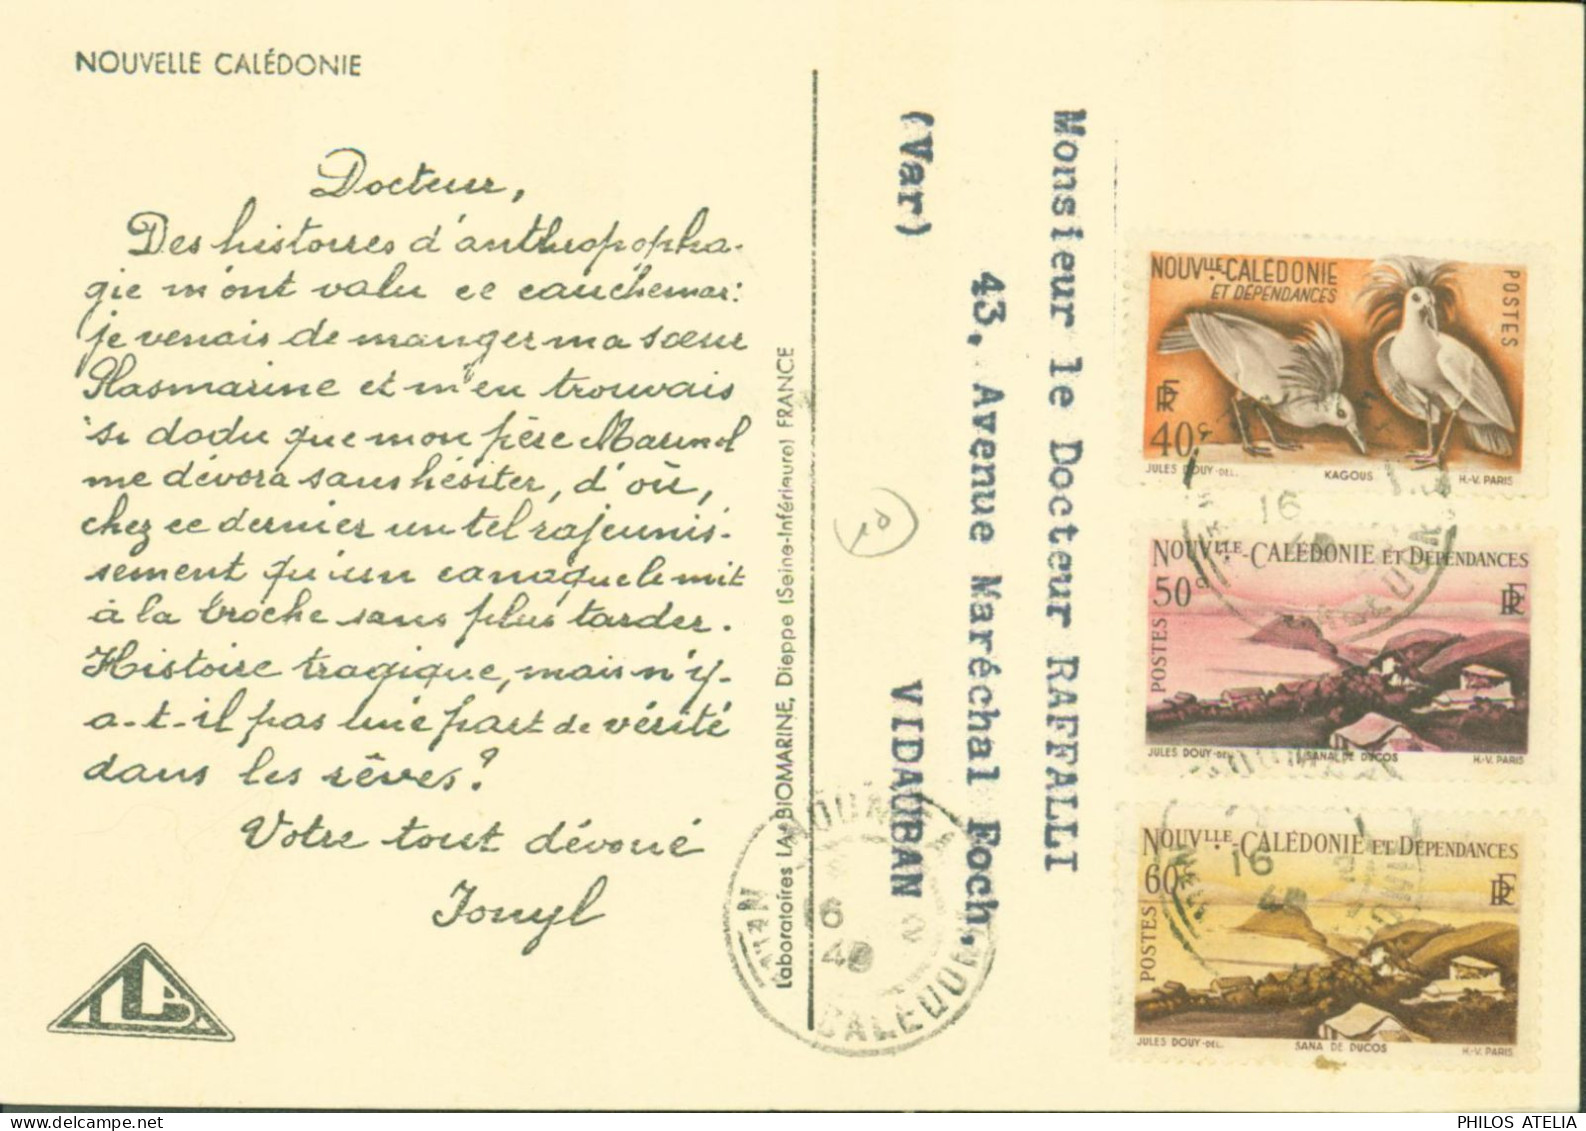 NOUVELLE CALÉDONIE
Docteur,
Des histoires d'anthropopha-
gie m'ont valu ce cauchemar:
je venais de manger ma sœur
Plasmarine et m'en trouvais
si dodu que mon père Marinol
me dévora sans hésiter, d'où,
chez ce dernier un tel rajeunis-
sement qu'un canaque le mit
à la broche sans plus tarder.
Histoire tragique, mais n'y-
a-t-il pas une part de vérité
dans les rêves?
Votre tout dévoué
Ionyl
LLB.
Laboratoires LA BIOMARINE, Dieppe (Seine-Inférieure) FRANCE
Monsieur le Docteur RAFFALLI
43, Avenue Maréchal Foch,
VIDAUBAN
(Var)
NOUVLLE-CALÉDONIE
ET DÉPENDANCES
POSTES
RF
40c
JULES DOUY-DEL. KAGOUS H.-V. PARIS
16
NOUVLLE-CALÉDONIE ET DÉPENDANCES
50c
RF
POSTES
JULES DOUY-DEL. SANA DE DUCOS H.-V. PARIS
NOUVLLE-CALÉDONIE ET DÉPENDANCES
60c
RF
POSTES
16
JULES DOUY-DEL. SANA DE DUCOS H.-V. PARIS
NOUMEA
6
48
CALEDONIE
PHILOS ATELIA